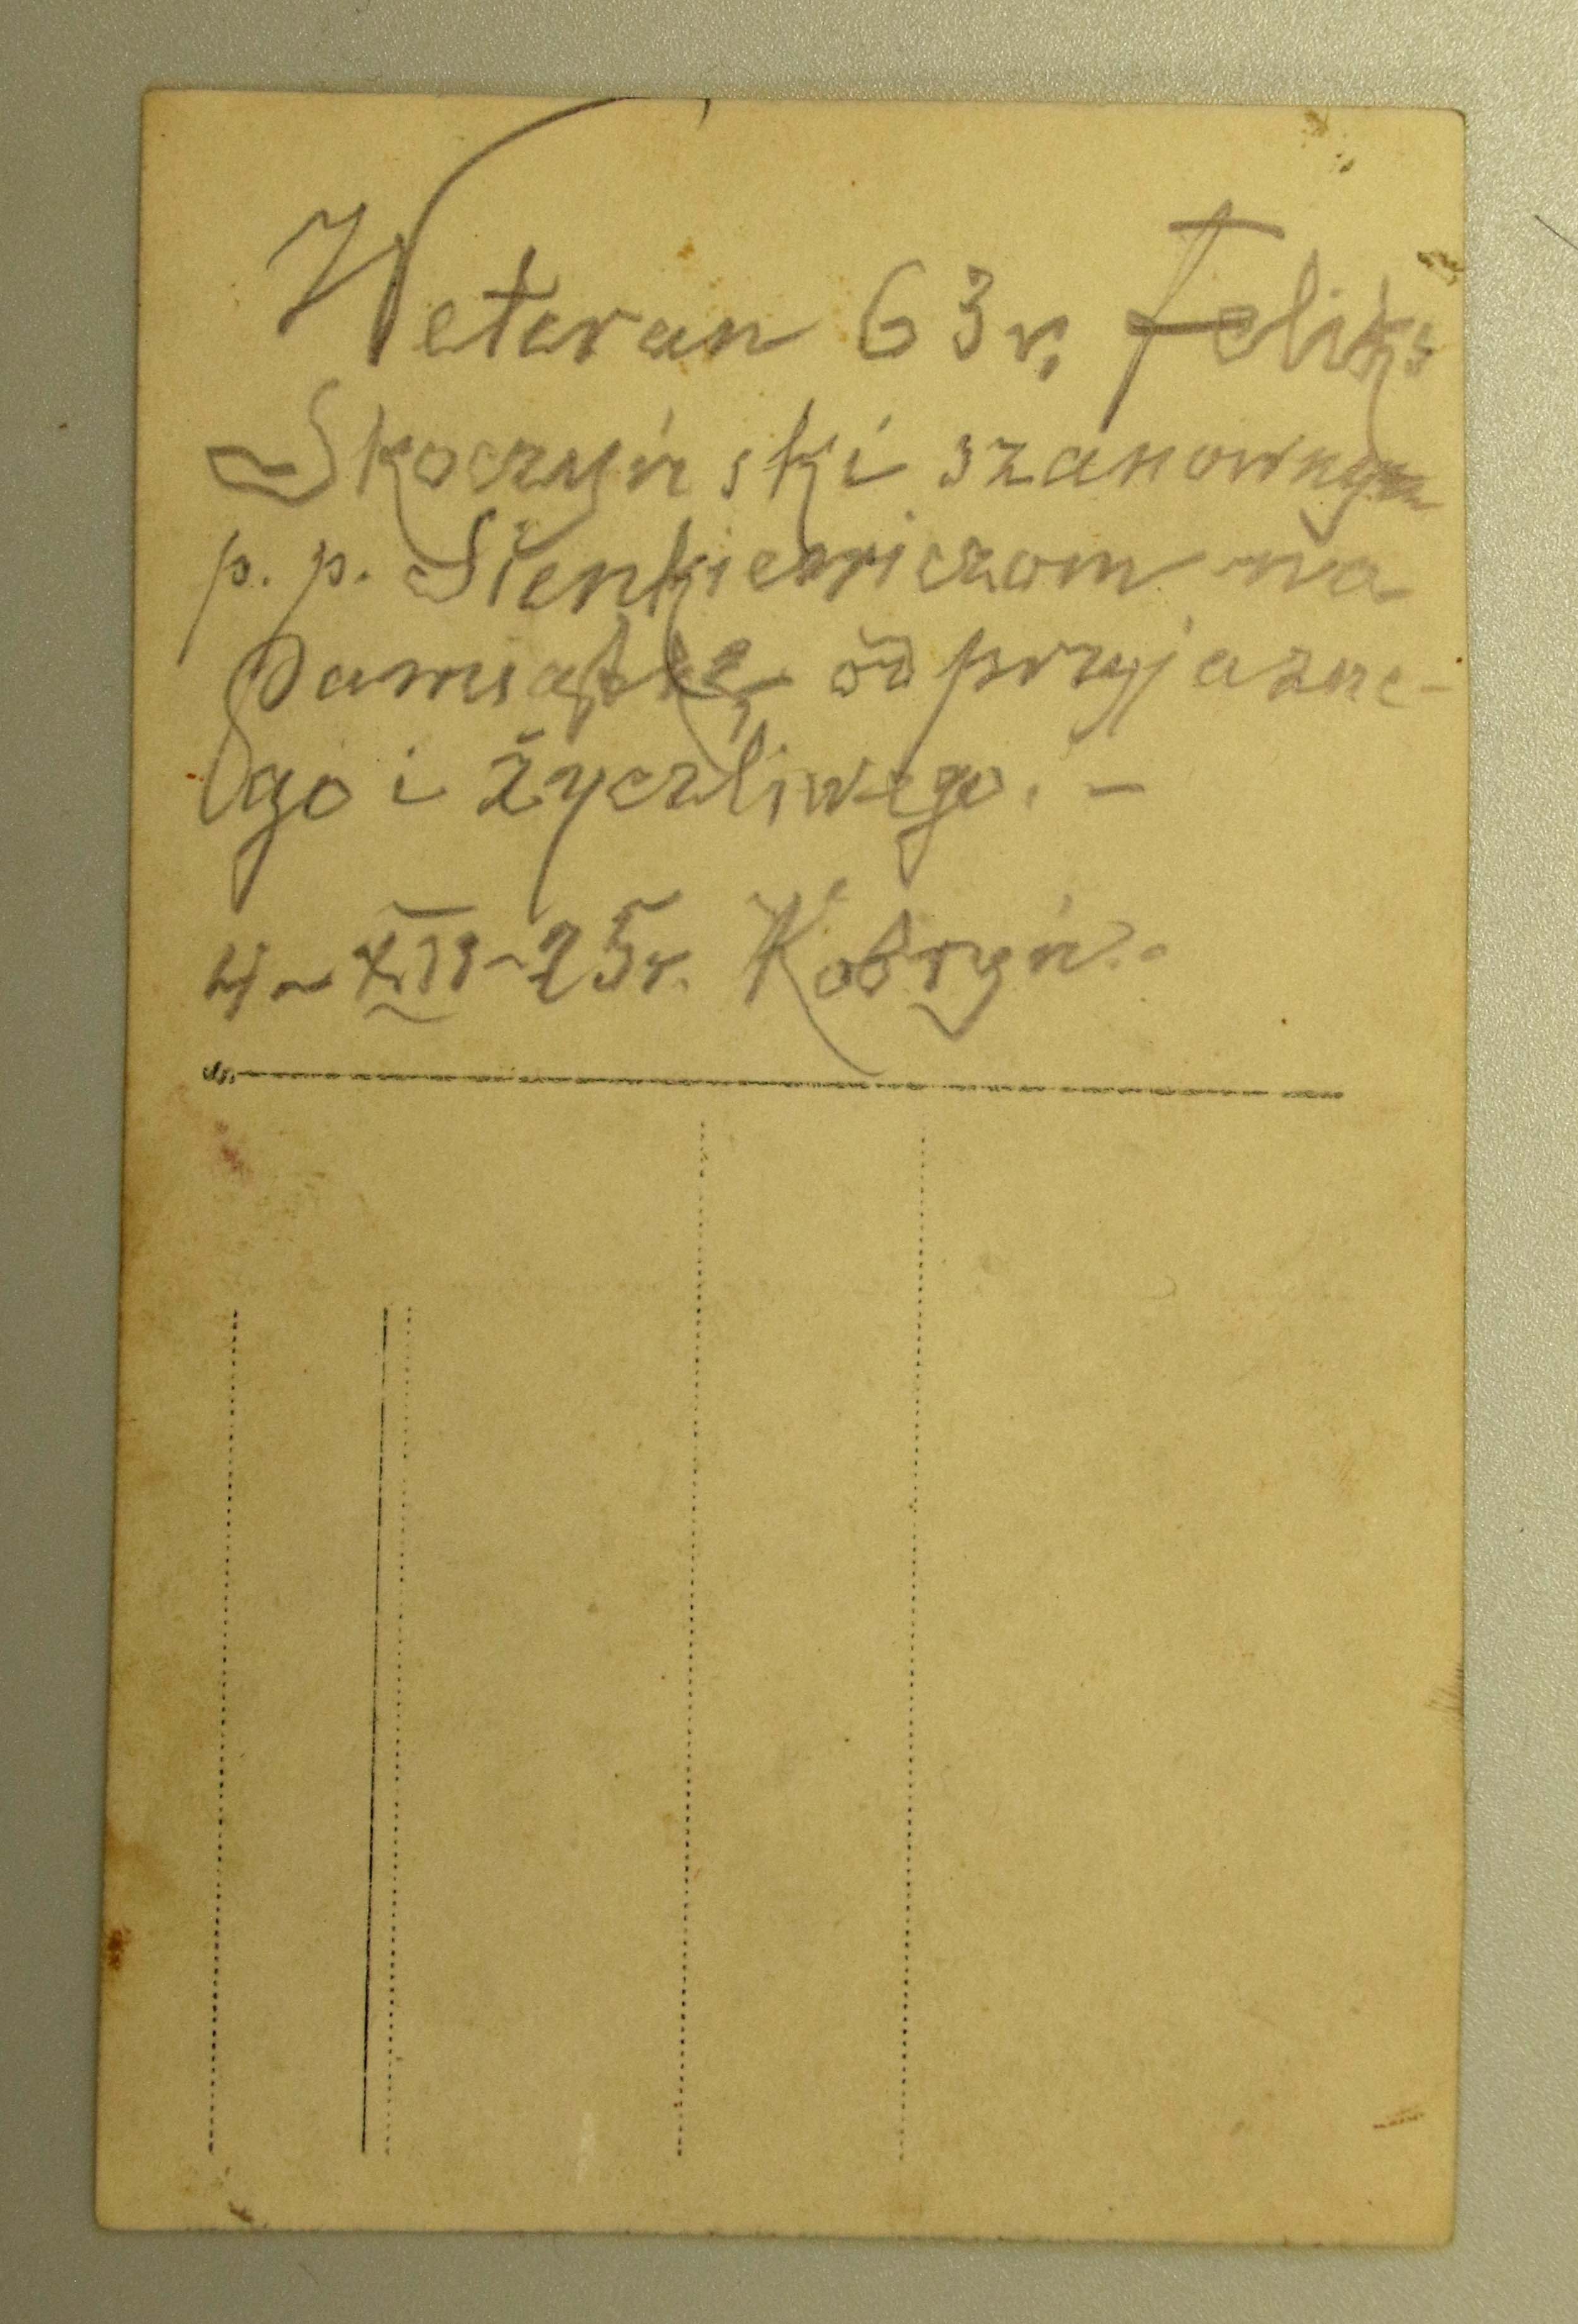 Weteran 63 r. Feliks
Skoczyński szanownym
p. p. Sienkiewiczom na
Pamiątkę od przyjazne-
go i życzliwego. –
4 – XII – 25 r. Kobryń. –